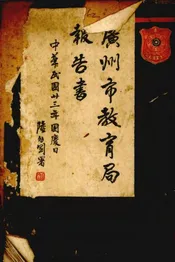 廣州市教育局
報告書
中華民國廿三年國慶日
陸幼剛署